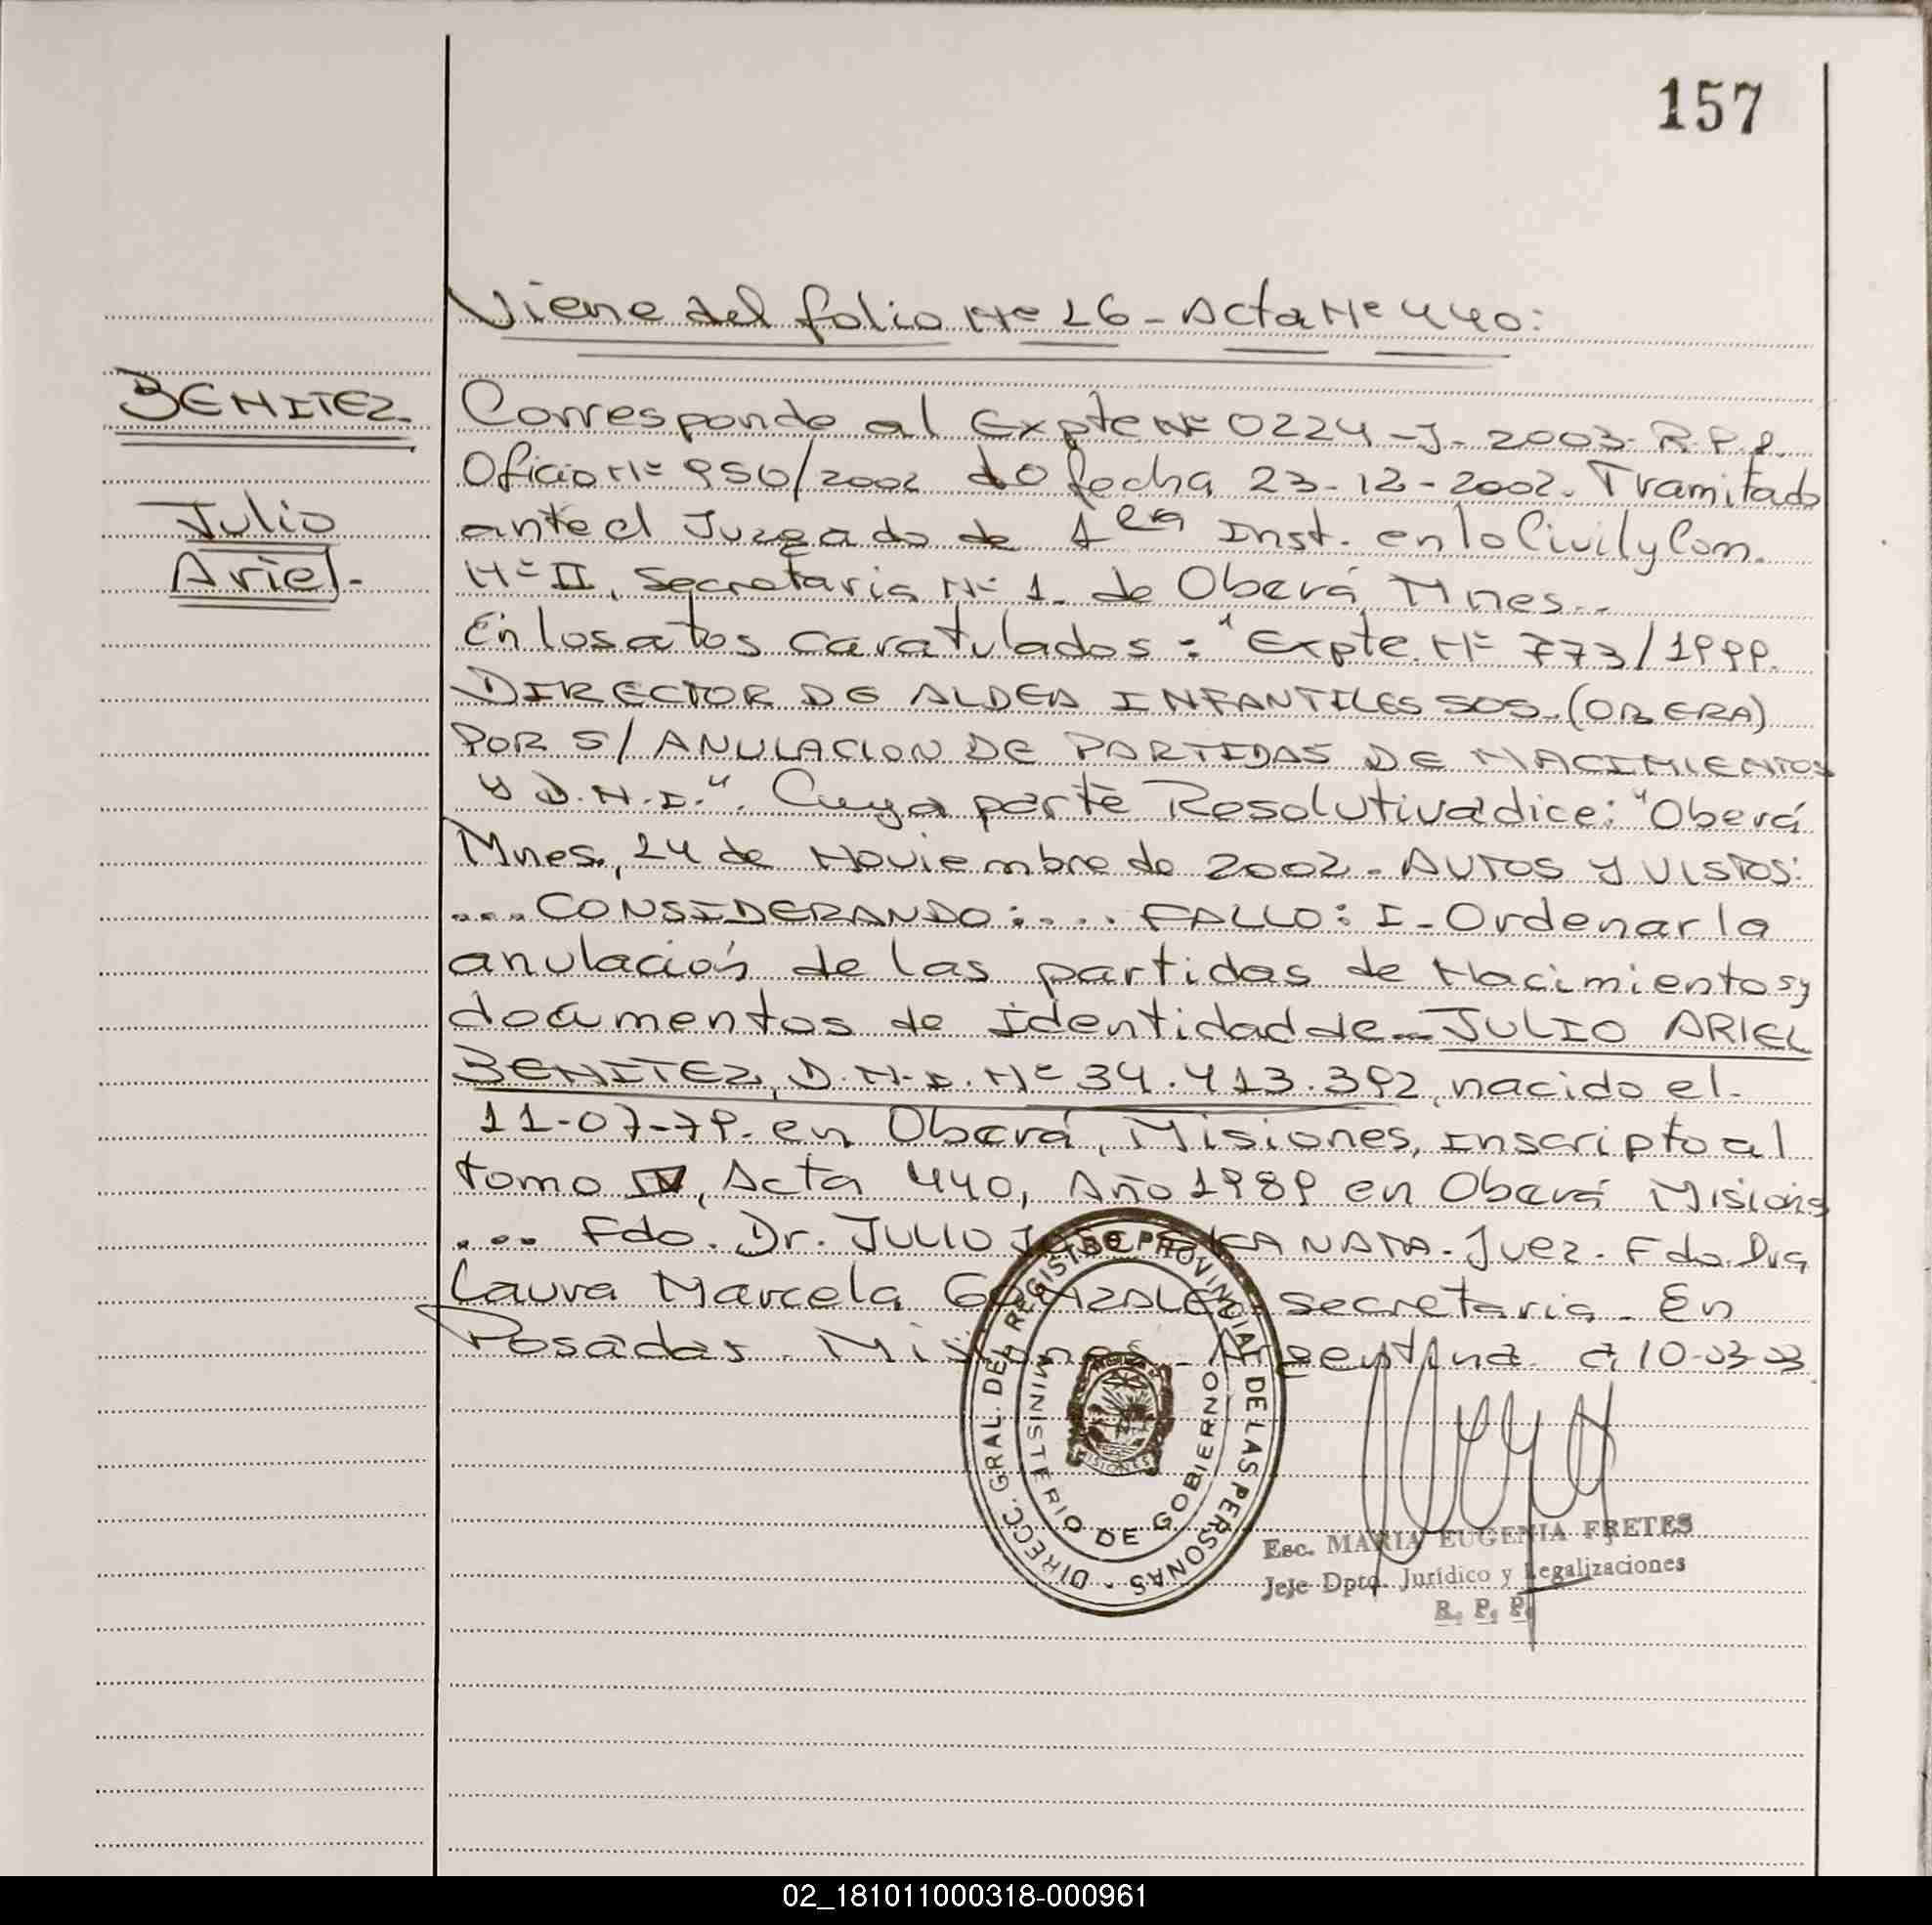 157
Viene del folio Nº 26 - Acta Nº 440:
BENITEZ.
Julio
Ariel.-
Corresponde al Expte Nº 0224-J-2003-R.P.P.
Oficio Nº 950/2002 de fecha 23-12-2002. Tramitado
ante el Juzgado de 1era Inst. en lo Civil y Com.
Nº II, Secretaria Nº 1- de Oberá Mnes..
En los atos caratulados: "Expte. Nº 773/1999.
DIRECTOR DE ALDEA INFANTILES SOS. (OBERA)
POR S/ ANULACION DE PARTIDAS DE NACIMIENTOS
Y D.N.I.". Cuya parte Resolutiva dice: "Oberá
Mnes., 24 de Noviembre de 2002.- AUTOS Y VISTOS:
.... CONSIDERANDO:.... FALLO: I- Ordenar la
anulación de las partidas de Nacimientos y
documentos de identidad de... JULIO ARIEL
BENITEZ, D.N.I. Nº 34.413.392, nacido el
11-07-79. en Oberá, Misiones, inscripto al
tomo IV, Acta 440, Año 1989 en Oberá Misions
.... Fdo. Dr. JULIO - Juez. Fdo. Dra
Laura Marcela GONZALEZ secretaria - En
Posadas - Misiones - Argentina a 10-03-03.
DIRECC. GRAL. DEL REGISTRO PROVINCIAL DE LAS PERSONAS -
MINISTERIO DE GOBIERNO
MISIONES
Esc. MARIA EUGENIA FRETES
Jeje Dpto. Jurídico y Legalizaciones
R. P. P.
02_181011000318-000961